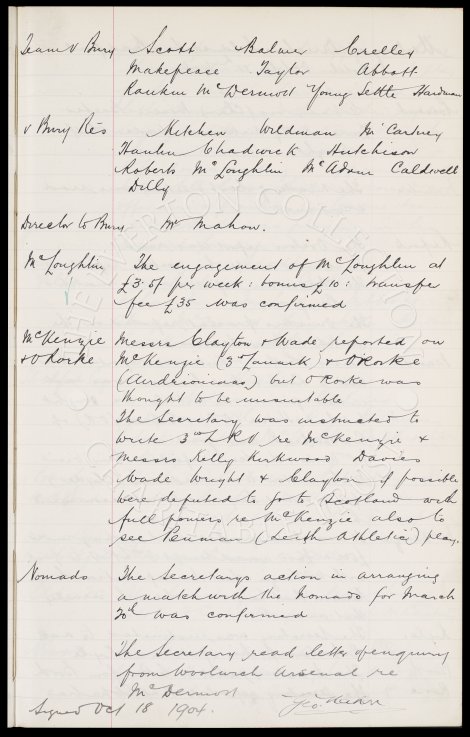 Team v Bury Scott Balmer Crelley
Makepeace Taylor Abbott
Rankin McDermott Young Settle Hardman
v Bury Res Kitchen Wildman McCartney
Hanlin Chadwick Hutchison
Roberts McLoughlin McAdam Caldwell
Dilly
Director to Bury Mr Mahon.
McLoughlin The engagement of McLoughlin at
£3.5/ per week: bonus £10: transfer
fee £35 was confirmed
McKenzie Messrs Clayton & Wade reported on
& O'Rorke McKenzie (3rd Lanark) & O'Rorke
(Airdrieonians) but O'Rorke was
thought to be unsuitable
The Secretary was instructed to
write 3rd L.R.V re McKenzie &
Messrs Kelly Kirkwood Davies
Wade Wright & Clayton if possible
were deputed to go to Scotland with
full powers re McKenzie also to
see Penman (Leith Athletic) play.
Nomads The Secretarys action in arranging
a match with the Nomads for March
was confirmed
The Secretary read letter of enquiry
from Woolwich Arsenal re
McDermott
Signed Oct 18 1904. Geo. Mahon
THE EVERTON COLLECTION
THE EVERTON COLLECTION